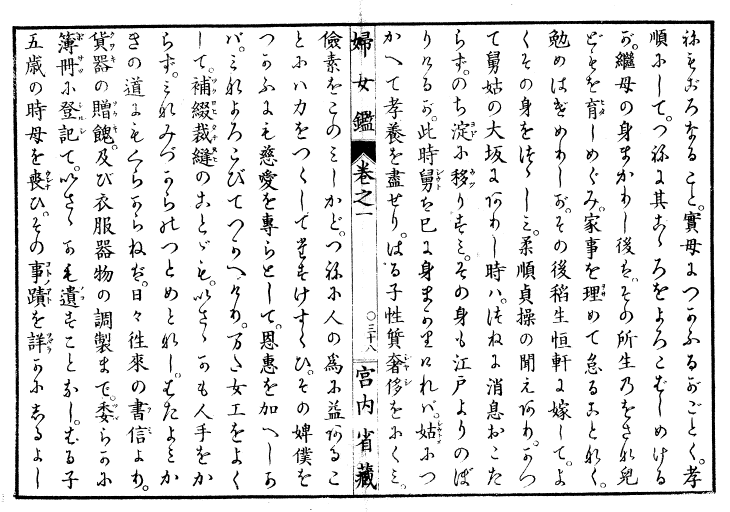 ねもごろなること。實母につかふるがごとく。孝
順にして。つねに其こゝろをよろこばしめける
が。繼母の身まかりし後も。その所生乃をさな兒
どもを育しめぐみ。家事を理めて怠ることなく。
勉めはげめりしが。その後稻生恒軒に嫁して。よ
くその身をつゝしみ。柔順貞操の聞えあり。かつ
て舅姑の大坂にありし時ハ。つねに消息おこた
らず。のち淀に移りすみ。その身も江戸よりのぼ
りけるが。此時舅を已に身まかりけれバ。姑につ
かへて孝養を盡せり。はる子性質奢侈をにくみ。
婦女鑑 卷之一 〇三十八 宮内省藏
儉素をこのミしかど。つねに人の爲に益あるこ
とにハ力をつくして
たすけすくひ。その婢僕を
つかふにも慈愛を專らとして。恩惠を加へしか
バ。みなよろこびてつかへけり。また女工をよく
して。補綴裁縫のことども。いさゝかも人手をか
らず。みなみづからのつとめとなし。むたよみか
きの道にもくらからねば。日々徃來の書信より。
貨器の贈餽。及び衣服器物の調製まで。委らかに
簿冊に登記て。いさゝかも遺すことなし。はる子
五歳の時母を喪ひ。その事蹟を詳かにしるよし